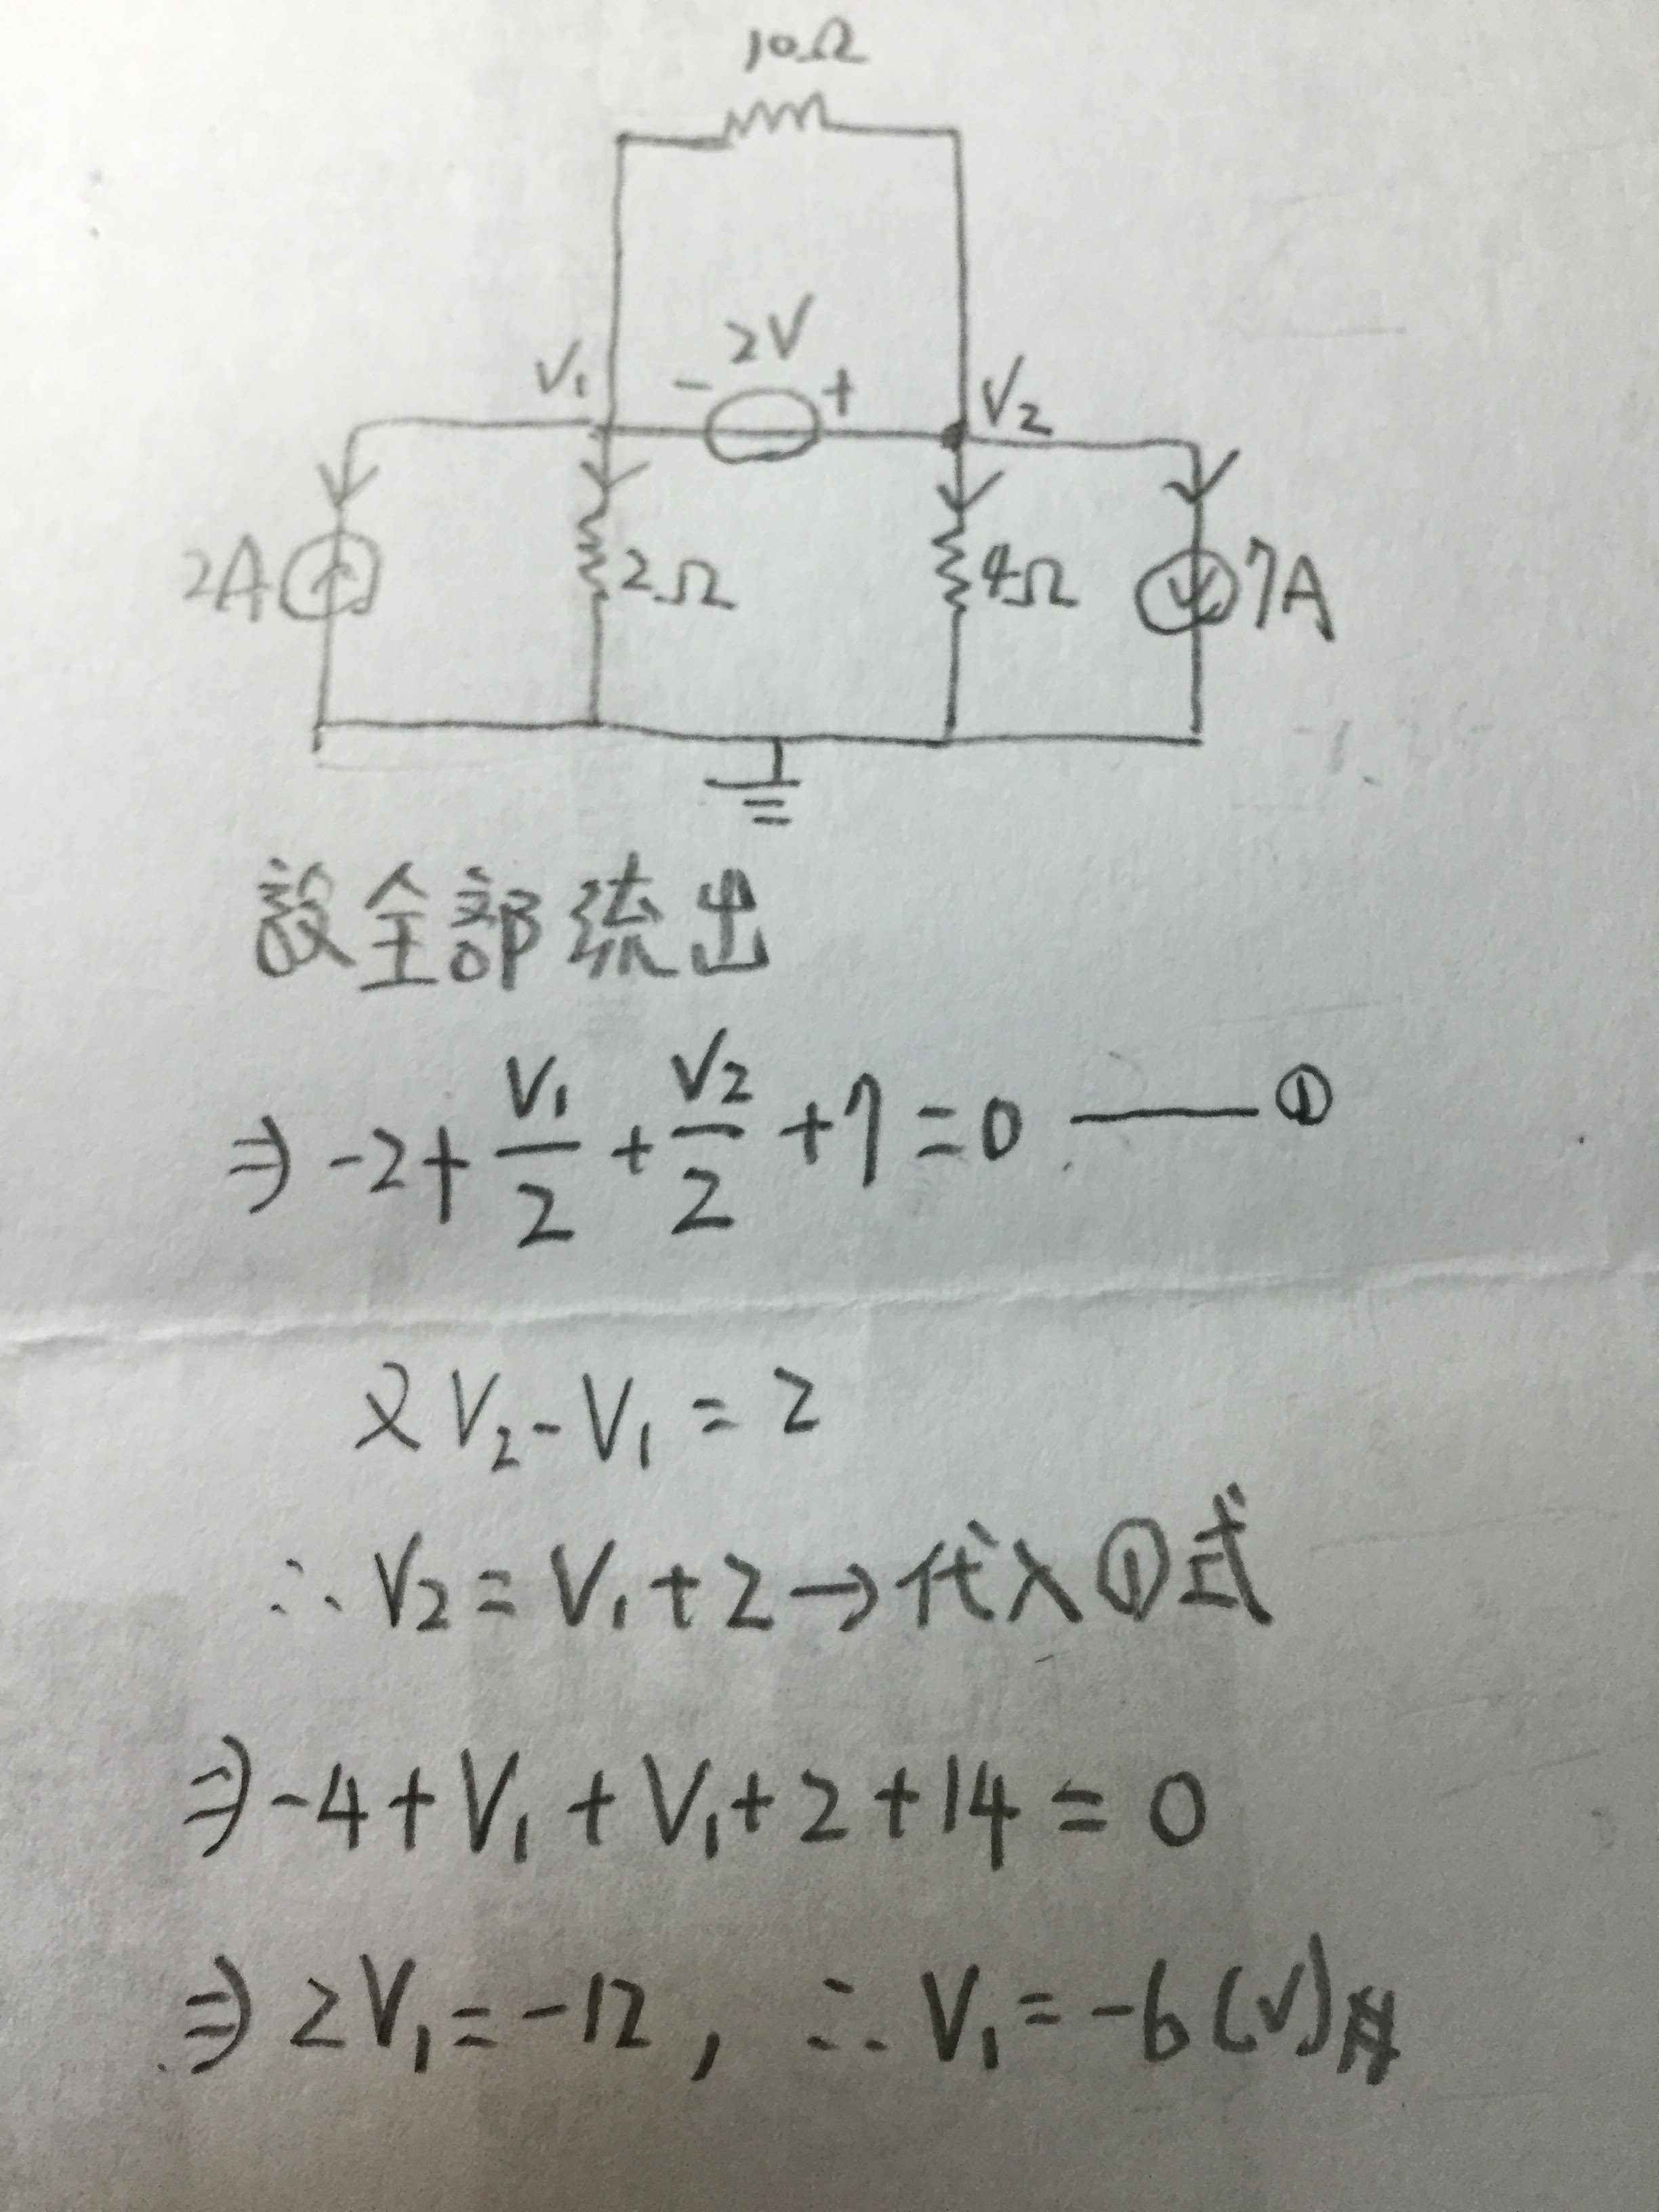 10Ω
2V
V₁ - + V₂
2A 2Ω 4Ω 7A
設全部流出
⇒ -2 + V₁/2 + V₂/2 + 7 = 0 —— ①
又 V₂ - V₁ = 2
∴ V₂ = V₁ + 2 → 代入①式
⇒ -4 + V₁ + V₁ + 2 + 14 = 0
⇒ 2V₁ = -12, ∴ V₁ = -6 (V)